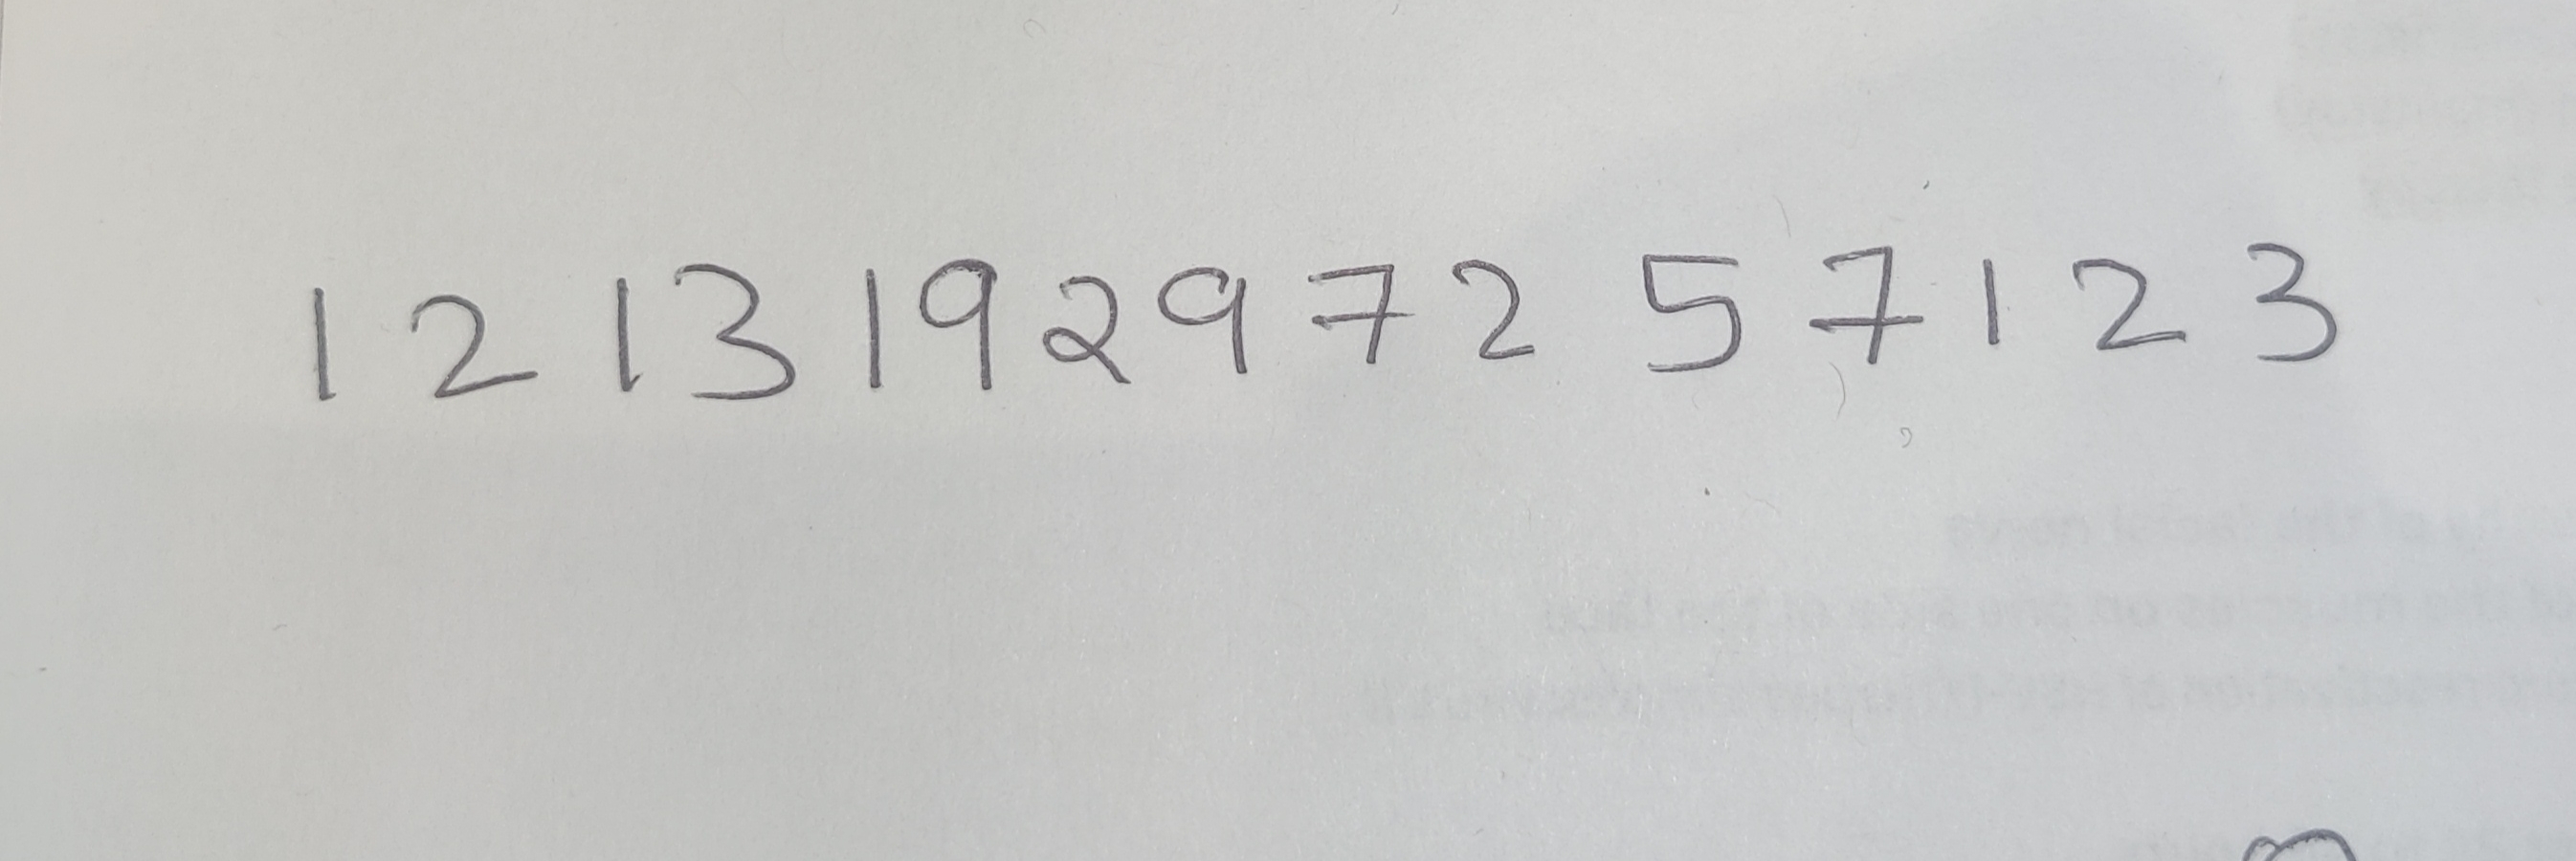 1 2 1 3 1 9 2 9 7 2 5 7 1 2 3